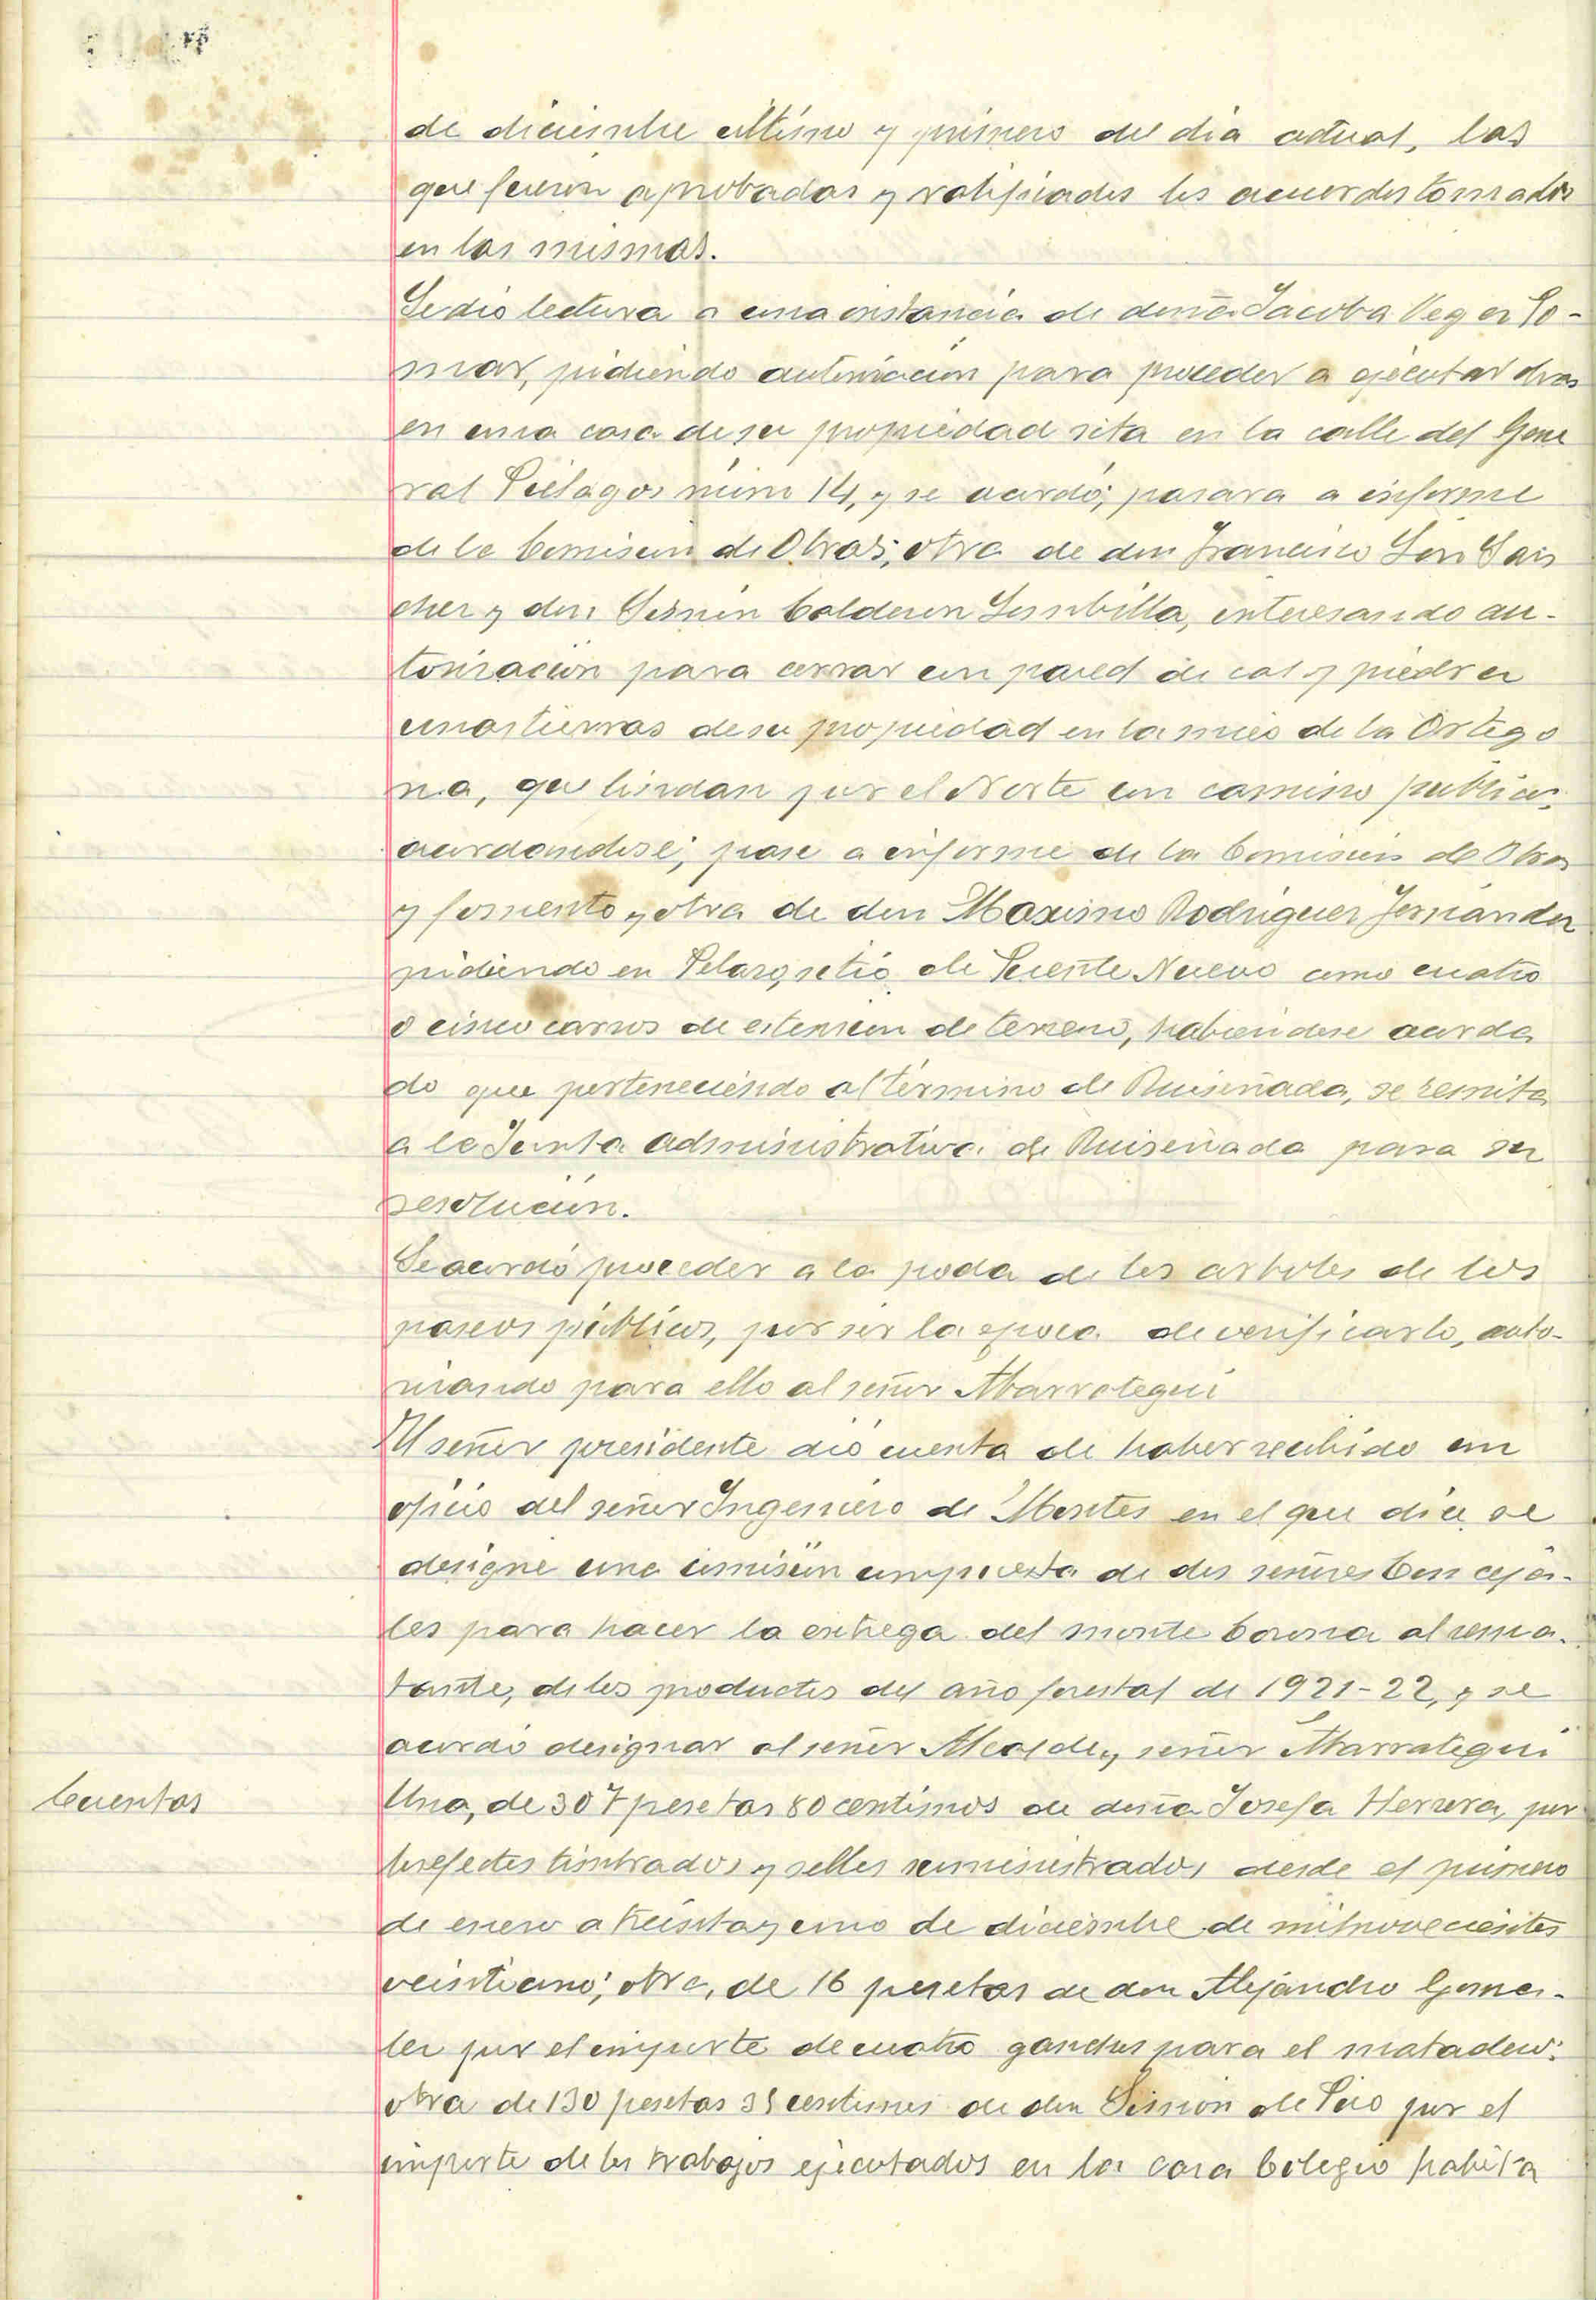 de diciembre último y primero del dia actual, las
que fueron aprobadas y ratificados los acuerdos tomados
en las mismas.
Se dió lectura a una instancia de doña Jacoba Vega
pidiendo autorización para proceder a ejecutar obras
en una casa de su propiedad sita en la calle del Gene
ral Piélagos núm 14, y se acordó; pasara a informe
de la Comisión de Obras; otra de don Francisco Sán
chez y don Calderon interesando au-
torización para cerrar con pared de cal y piedra
unas tierras de su propiedad en la mies de la Ortego
na, que lindan por el Norte con camino publico;
acordandose; pase a informe de la Comisión de Obras
y fomento y otra de don Maximo Rodriguez Fernández
pidiendo en sitio de Puente Nuevo como cuatro
o cinco carros de estensión de terreno, habiendose acorda
do que perteneciendo al término de Ruiseñada, se remita
a la Junta administrativa de Ruiseñada para su
resolución.
Se acordó proceder a la poda de los arboles de los
paseos públicos, por ser la epoca de verificarlo, auto-
rizando para ello al señor Marrategui
El señor presidente dió cuenta de haber recibido un
oficio del señor Ingeniero de Montes en el que dice, se
designe una comisión compuesta de dos señores Conceja-
les para hacer la entrega del monte Corona al rema-
tante, de los productos del año forestal de 1921-22, y se
acordó designar al señor Alcalde y señor Marrategui
Cuentas
Una, de 307 pesetas 80 centimos de doña Josefa Herrera, por
los efectos timbrados y sellos suministrados desde el primero
de enero a treinta y uno de diciembre de mil novecientos
veintiuno; otra, de 16 pesetas de don Alejandro Gonza-
lez por el importe de cuatro ganchos para el matadero;
otra de 130 pesetas centimos de don de Pío por el
importe de los trabajos ejecutados en la casa Colegio habita